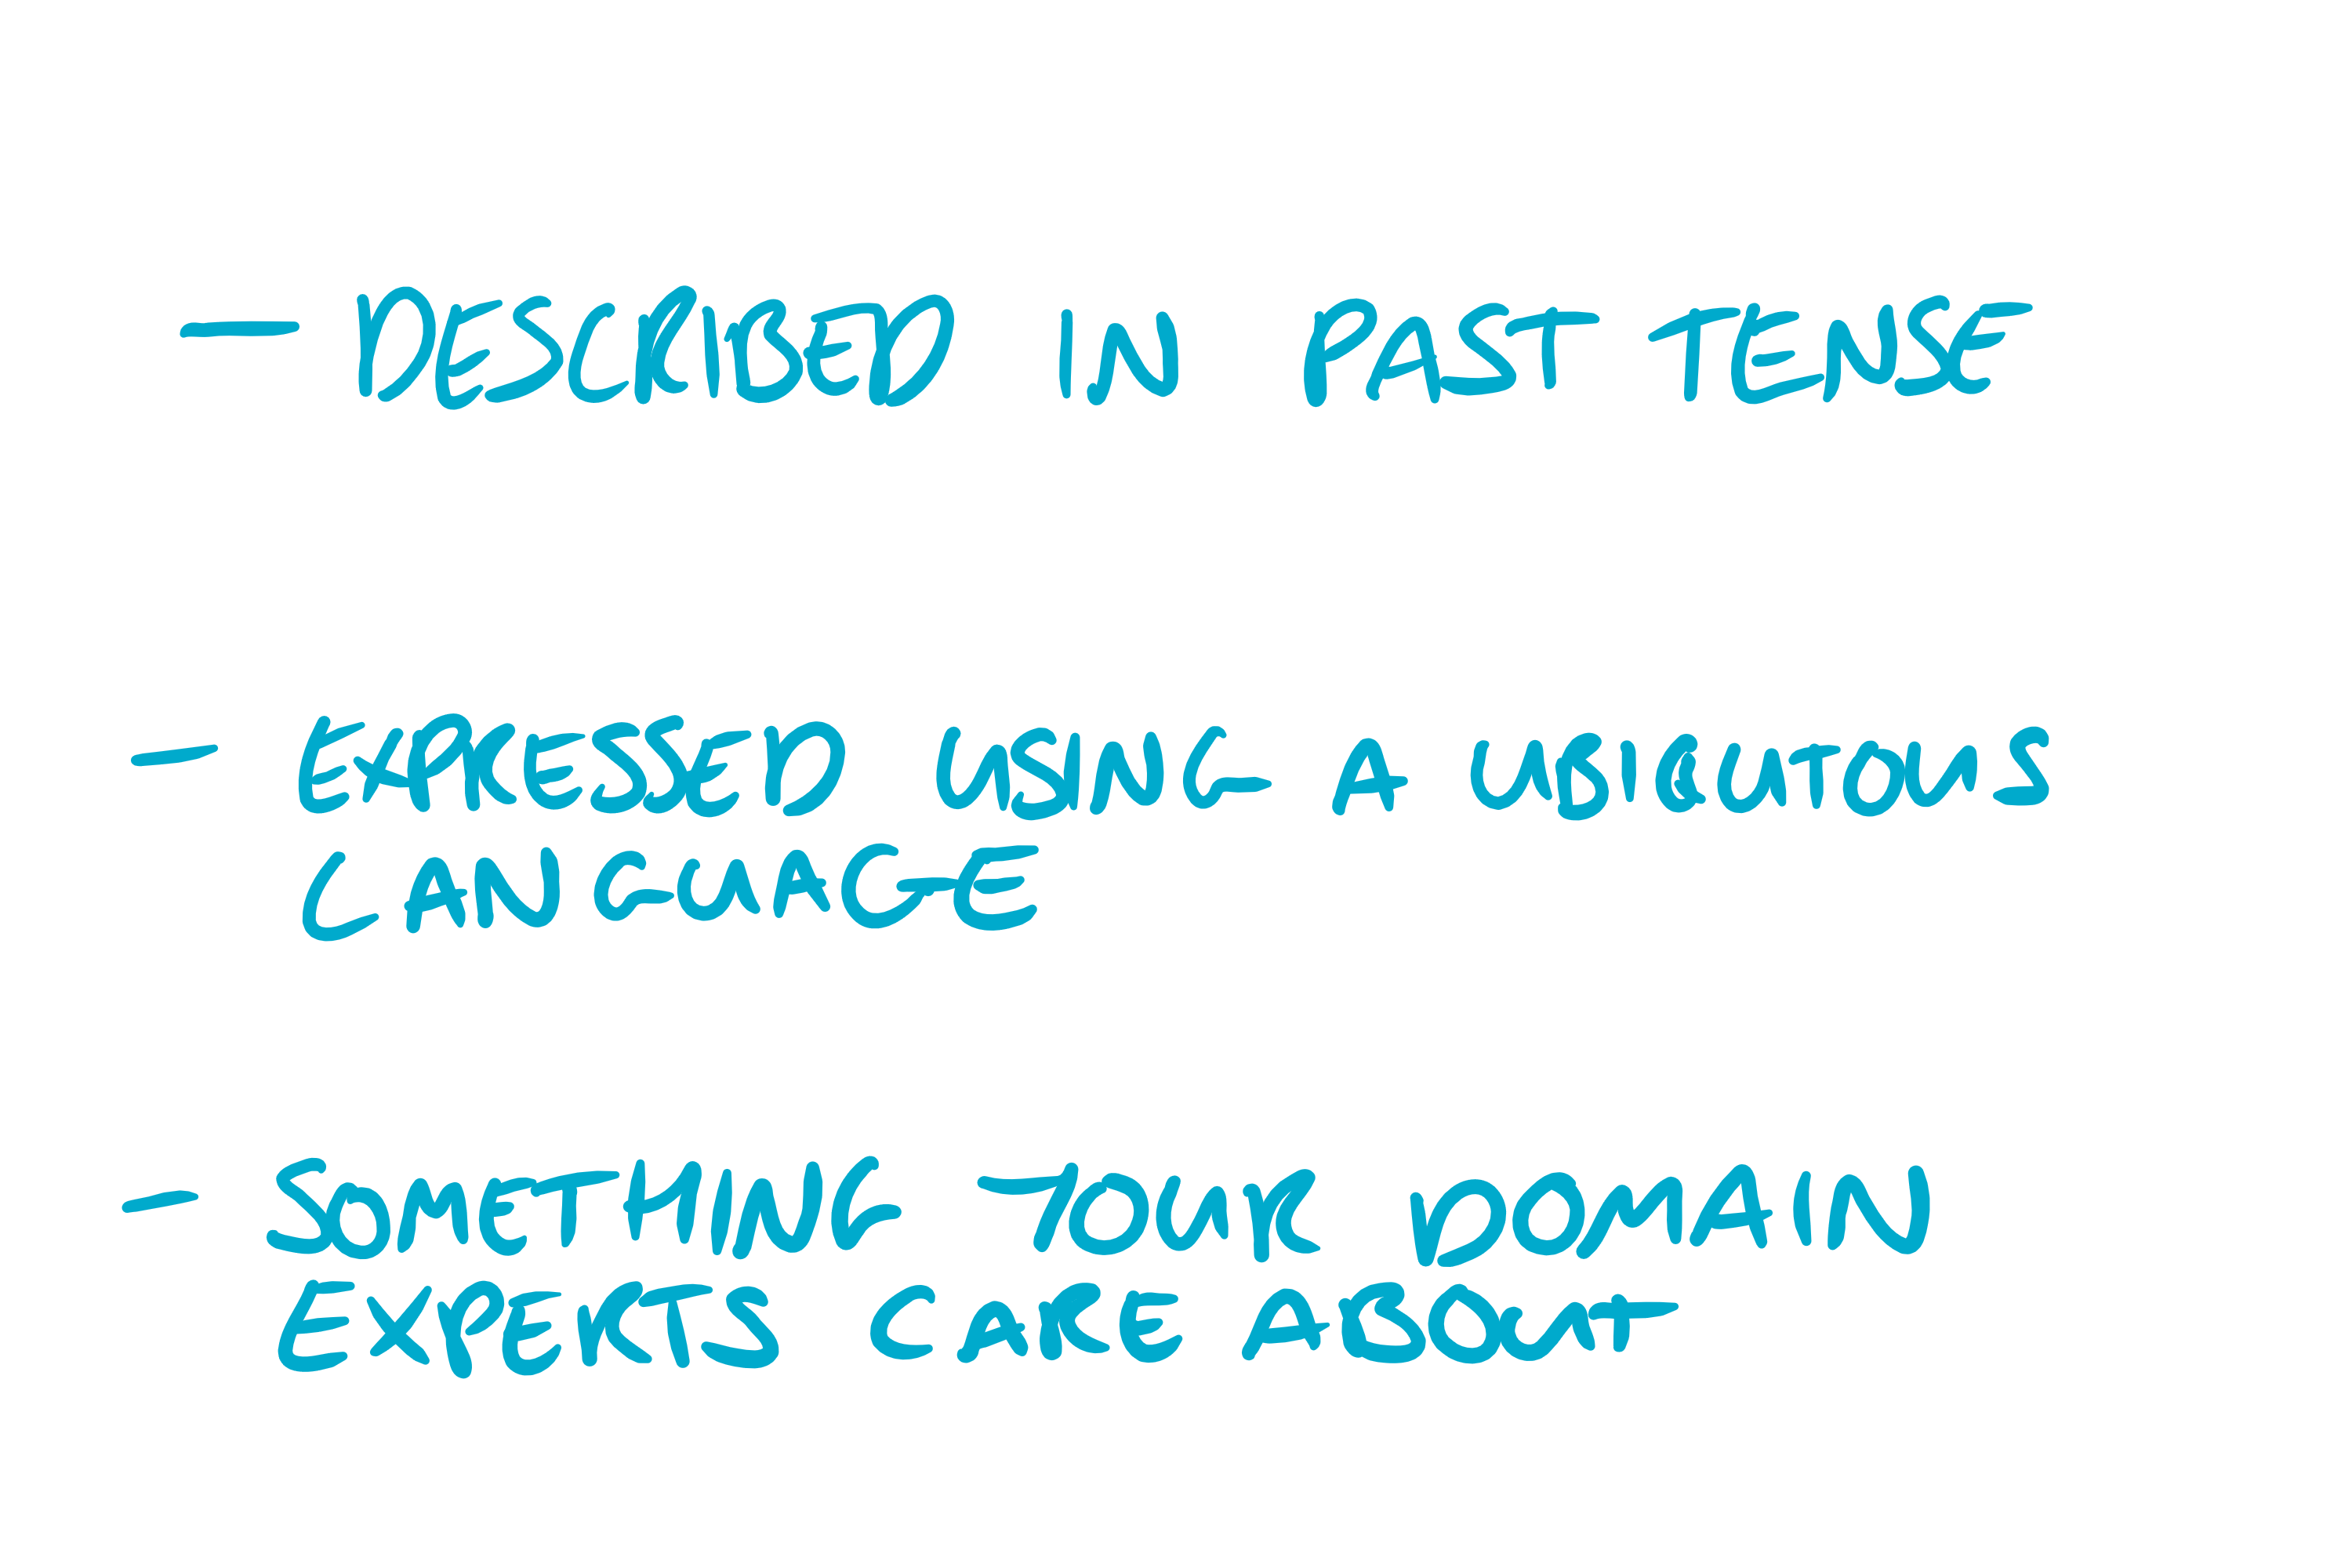 — DESCRIBED IN PAST TENSE
— EXPRESSED USING A UBIQUTOUS
LANGUAGE
— SOMETHING YOUR DOMAIN
EXPERTS CARE ABOUT